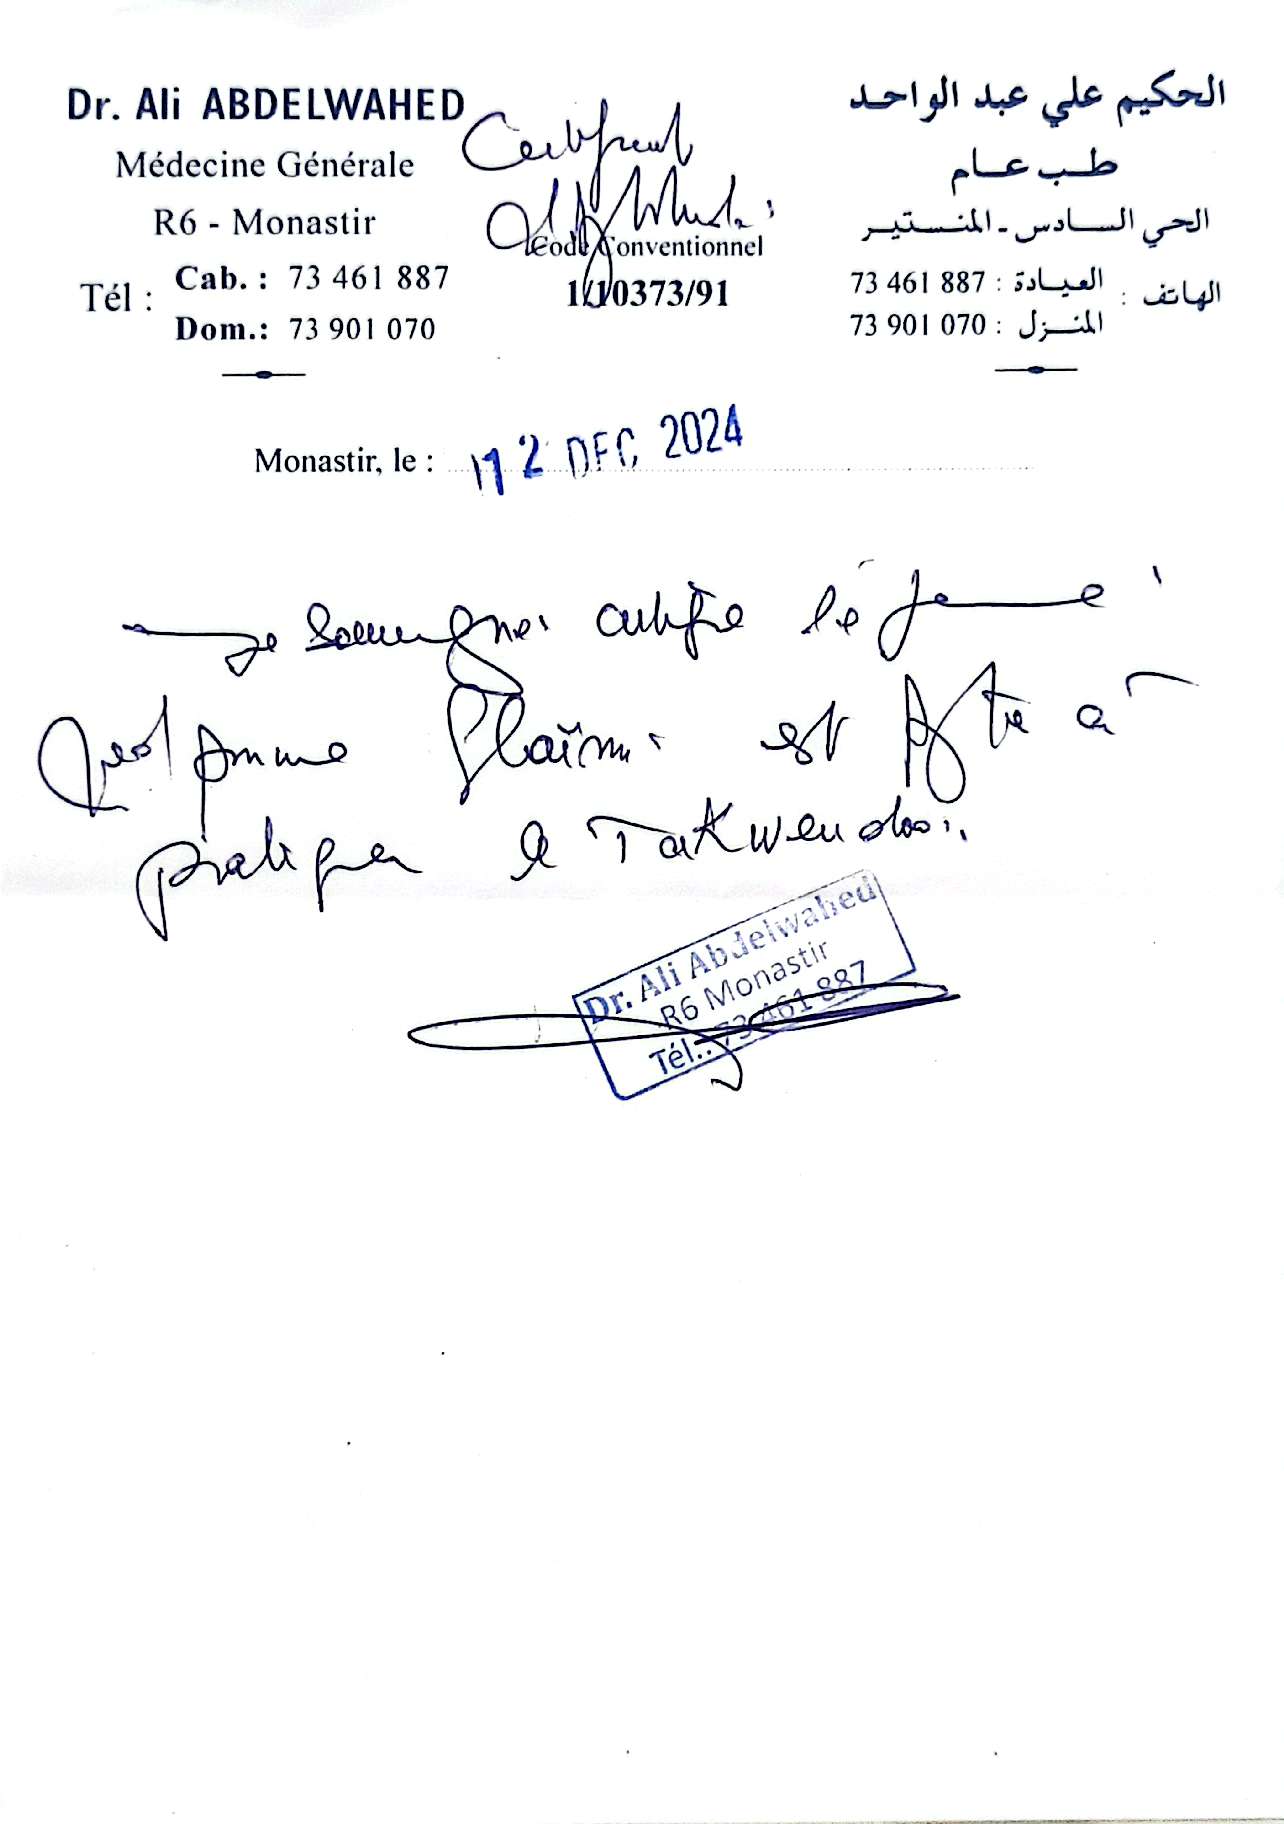 Dr. Ali ABDELWAHED
Médecine Générale
R6 - Monastir
Tél : Cab. : 73 461 887
Dom.: 73 901 070
Certificat
Code Conventionnel
1/10373/91
الحكيم علي عبد الواحد
طب عام
الحي السادس - المنستير
الهاتف : العيادة : 887 461 73
المنزل : 070 901 73
Monastir, le : 12 DEC 2024
Je soussigné certifie le jeune
est apte à
pratiquer le Taekwendo
Dr. Ali Abdelwahed
R6 Monastir
Tél.: 73 461 887